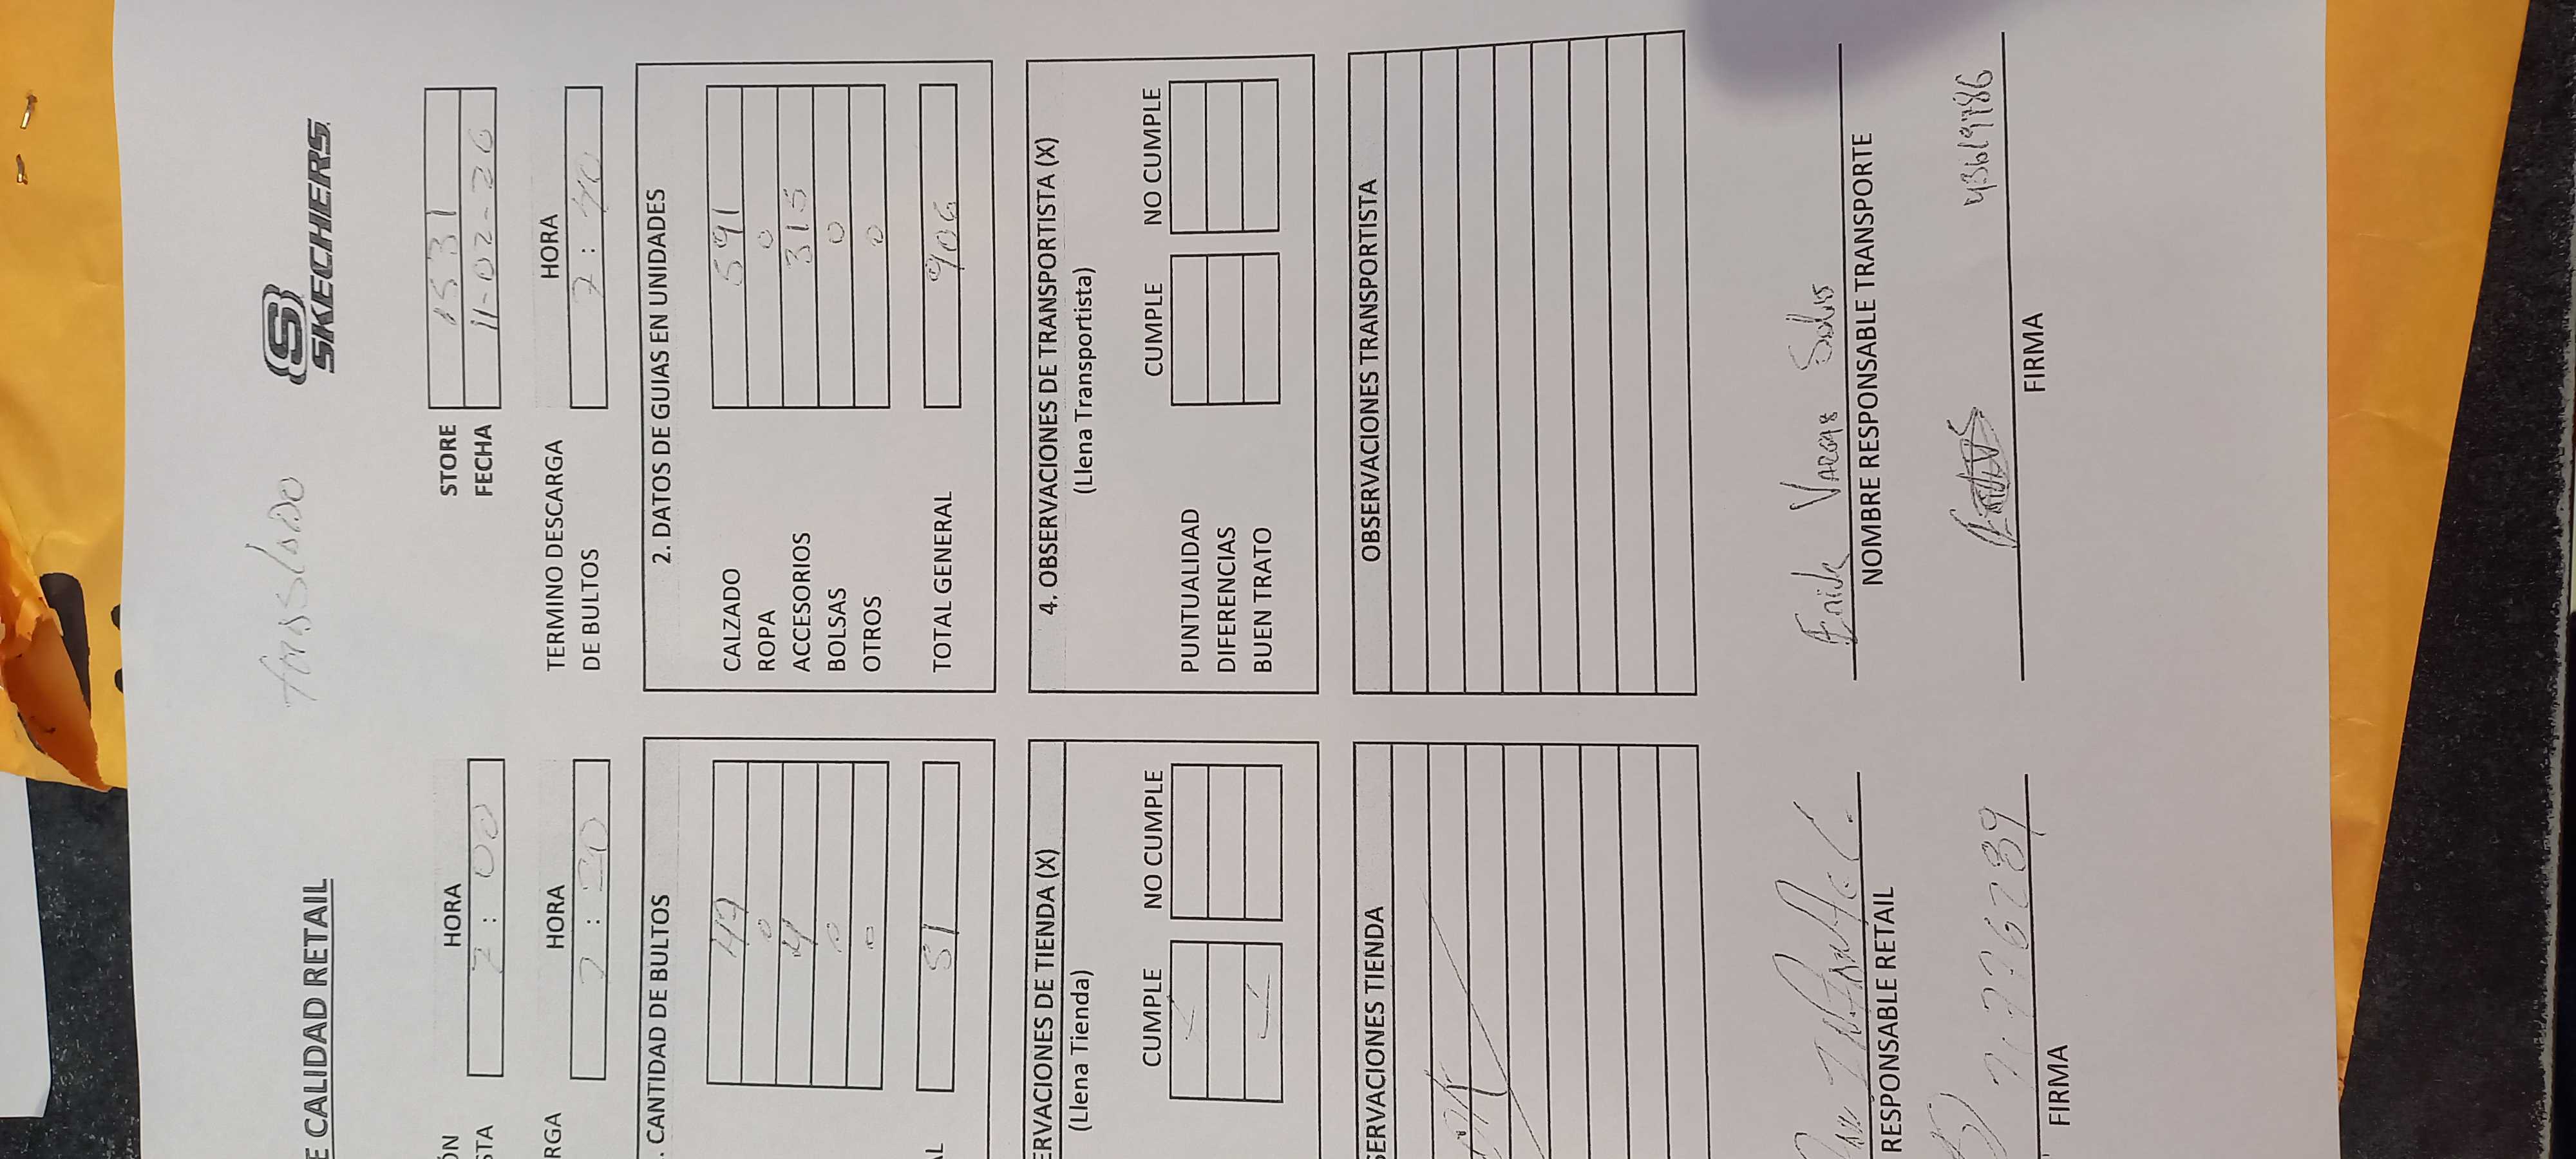 traslado
SKECHERS
E CALIDAD RETAIL
STORE 1531
HORA
FECHA 11-02-26
ÓN
STA
7:00
HORA
TERMINO DESCARGA
HORA
RGA
DE BULTOS
7:40
. CANTIDAD DE BULTOS
2. DATOS DE GUIAS EN UNIDADES
CALZADO 591
ROPA 0
0
ACCESORIOS 315
4
BOLSAS 0
0
OTROS 0
0
AL 51
TOTAL GENERAL 906
ERVACIONES DE TIENDA (X)
(Llena Tienda)
4. OBSERVACIONES DE TRANSPORTISTA (X)
(Llena Transportista)
CUMPLE NO CUMPLE
CUMPLE NO CUMPLE
PUNTUALIDAD
DIFERENCIAS
BUEN TRATO
SERVACIONES TIENDA
OBSERVACIONES TRANSPORTISTA
OK
Vargas Solis
RESPONSABLE RETAIL
NOMBRE RESPONSABLE TRANSPORTE
43619786
FIRMA
FIRMA